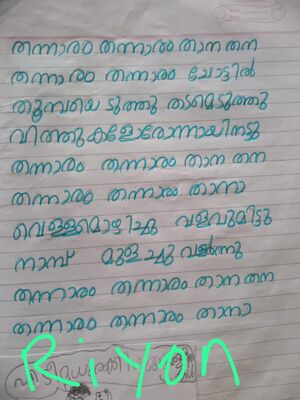 തന്നാരം തന്നാരം താന തന
തന്നാ രം തന്നാരം ചോട്ടിൽ
തൂമ്പയെ ടുത്തു തടമെടുത്തു
വിത്തുകളോരോന്നായിനട്ടു
തന്നാരം തന്നാരം താന തന
തന്നാരം തന്നാരം താനാ
വെള്ളമൊഴിച്ചു വളവുമിട്ടു
നാമ്പ് മുളച്ചു വളർന്നു
തന്നാരം തന്നാരം താന തന
തന്നാരം തന്നാരം താനാ
Riyon